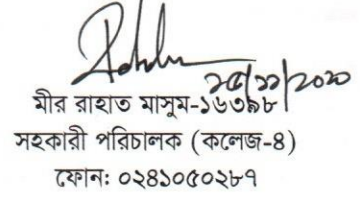 ২৫/১১/২০২০
মীর রাহাত মাসুম-১৬৩৯৮
সহকারী পরিচালক (কলেজ-৪)
ফোন: ০২৪১০৫০২৮৭